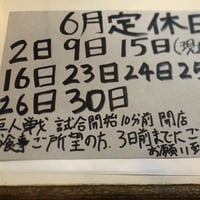 6月定休日
2日 9日 15日(現
16日 23日 24日 25
26日 30日
巨人戦 試合開始10分前 開店
お食事ご所望の方、3日前までにご
お願い致